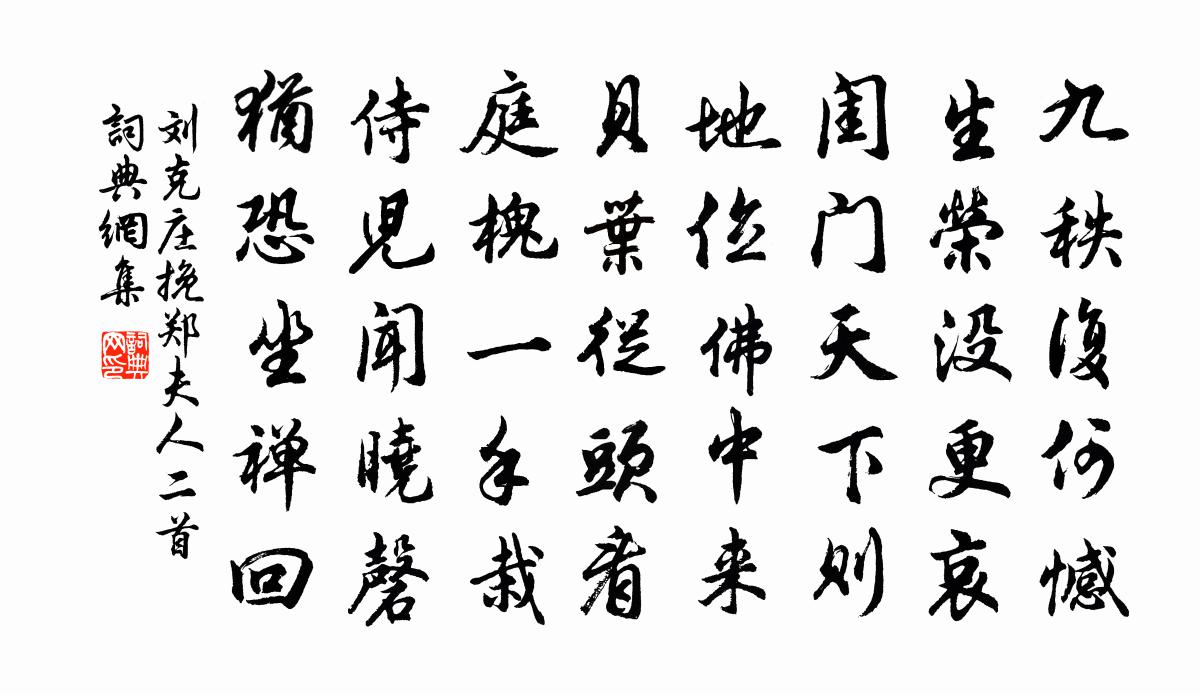 九秩復何憾
生榮没更哀
閨门天下则
地位佛中来
貝葉從頭看
庭槐一手栽
侍児闻曉磬
猶恐坐禅回
刘克庄挽郑夫人二首
詞典網集
詞典网印